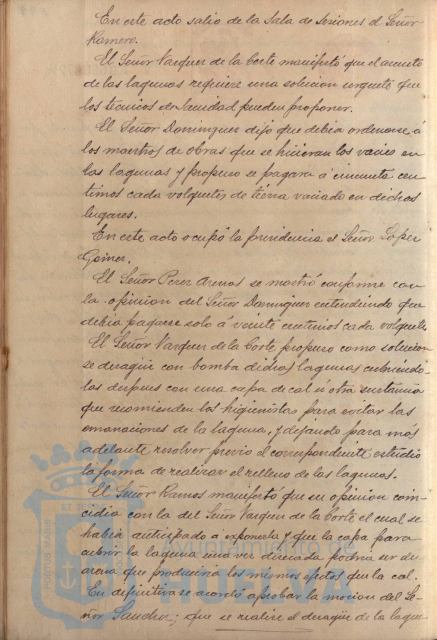 En este acto salio de la Sala de Sesiones el Señor
Romero.
El Señor Vazquez de la Corte manifestó que el asunto
de las lagunas requiere una solucion urgente que
los técnicos de Sanidad pueden proponer.
El Señor Dominguez dijo que debia ordenarse á
los maestros de obras que se hicieran los vacies en
las lagunas y propuso se pagara á cincuenta cen-
timos cada volquete de tierra vaciado en dichos
lugares.
En este acto ocupó la presidencia el Señor Lopez
Gomez.
El Señor Perez Arenas se mostró conforme con
la opinion del Señor Dominguez entendiendo que
debia pagarse solo á veinte centimos cada volquete.
El Señor Vazquez de la Corte, propuso como solucion
se desagüe con bomba dichas lagunas cubriendo-
las despues con una capa de cal ú otra sustancia
que recomienden los higienistas para evitar las
emanaciones de la laguna, y dejando para más
adelante resolver previo el correspondiente estudio
la forma de realizar el relleno de las lagunas.
El Señor Ramos manifestó que su opinion coin-
cidia con la del Señor Vazquez de la Corte el cual se
habia anticipado a exponerla y que la capa para
cubrir la laguna una vez disecada podria ser de
arena que produciria los mismos efectos que la cal.
En definitiva se acordó aprobar la mocion del Se-
ñor Sanchez; que se realice el desagüe de la lagu-